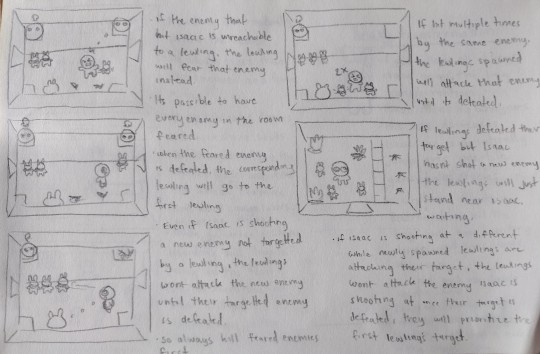 · if the enemy that
hit isaac is unreachable
to a lewling, the lewling
will fear that enemy
instead
Its possible to have
every enemy in the room
feared.
· when the feared enemy
is defeated, the corresponding
lewling will go to the
first lewling
· Even if isaac is shooting
a new enemy not targetted
by a lewling, the lewlings
wont attack the new enemy
until their targetted enemy
is defeated.
· so always kill feared enemies
first
2x
If hit multiple times
by the same enemy,
the lewlings spawned
will attack that enemy
until is defeated.
If lewlings defeated their
target but Isaac
hasnt shot a new enemy
the lewlings will just
stand near isaac,
waiting.
· if isaac is shooting at a different
while newly spawned lewlings are
attacking their target, the lewlings
wont attack the enemy isaac is
shooting at once their target is
defeated, they will prioritize the
first lewlings target.